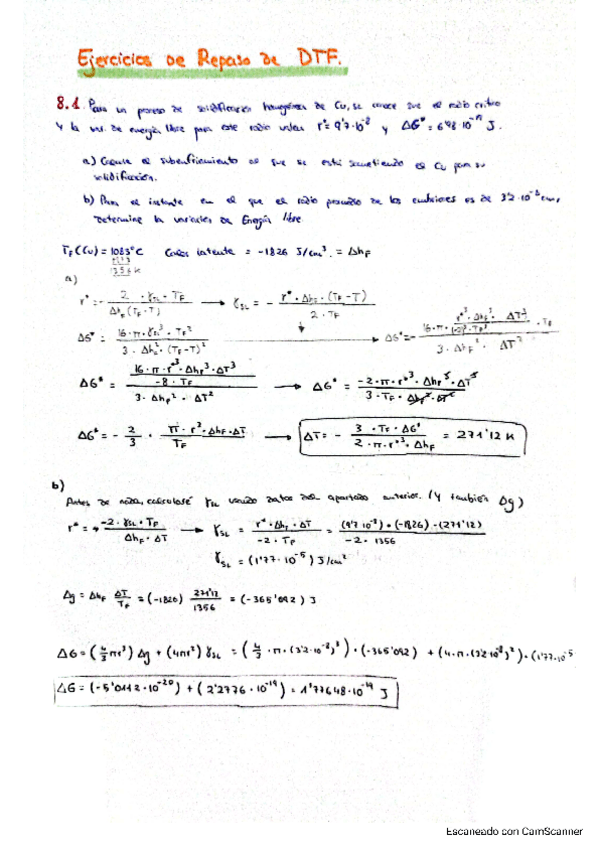 Ejercicios de Repaso de DTF.
8.1. Para un proceso de solidificación homogénea de Cu, se conoce que el radio crítico
y la var. de energía libre para este radio valen r* = 9'7·10⁻⁸ y ΔG* = 6'48·10⁻¹⁹ J.
a) Calcule el subenfriamiento al que se está sometiendo el Cu para su
solidificación.
b) Para el instante en el que el radio promedio de los embriones es de 3'2·10⁻⁸ cm,
determine la variación de Energía libre.
T_F (Cu) = 1083°C Calor latente = -1826 J/cm³ = Δh_F
1356 K
a)
r* = - 2 · γ_SL · T_F / Δh_F (T_F - T) → γ_SL = - r* · Δh_F · (T_F - T) / 2 · T_F
ΔG* = 16 · π · γ_SL³ · T_F² / 3 · Δh_F² · (T_F - T)²
ΔG* = 16 · π · r*³ · Δh_F³ · ΔT³ / -8 · T_F / 3 · Δh_F² · ΔT² → ΔG* = -2 · π · r*³ · Δh_F³ · ΔT³ / 3 · T_F · Δh_F² · ΔT²
ΔG* = - 2/3 · π · r³ · Δh_F · ΔT / T_F → ΔT = - 3 · T_F · ΔG* / 2 · π · r*³ · Δh_F = 271'12 K
b)
Antes de nada, calcularé γ_SL usando datos del apartado anterior. (Y también Δg)
r* = -2 · γ_SL · T_F / Δh_F · ΔT → γ_SL = r* · Δh_F · ΔT / -2 · T_F = (9'7·10⁻⁸) · (-1826) · (271'12) / -2 · 1356
γ_SL = (1'77·10⁻⁵) J/cm²
Δg = Δh_F ΔT/T_F = (-1826) 271'12/1356 = (-365'092) J
ΔG = (4/3 πr³) Δg + (4πr²) γ_SL = (4/3 · π · (3'2·10⁻⁸)³) · (-365'092) + (4·π·(3'2·10⁻⁸)²) · (1'77·10⁻⁵
ΔG = (-5'0112·10⁻²⁰) + (2'2776·10⁻¹⁹) = 1'77648·10⁻¹⁹ J
Escaneado con CamScanner